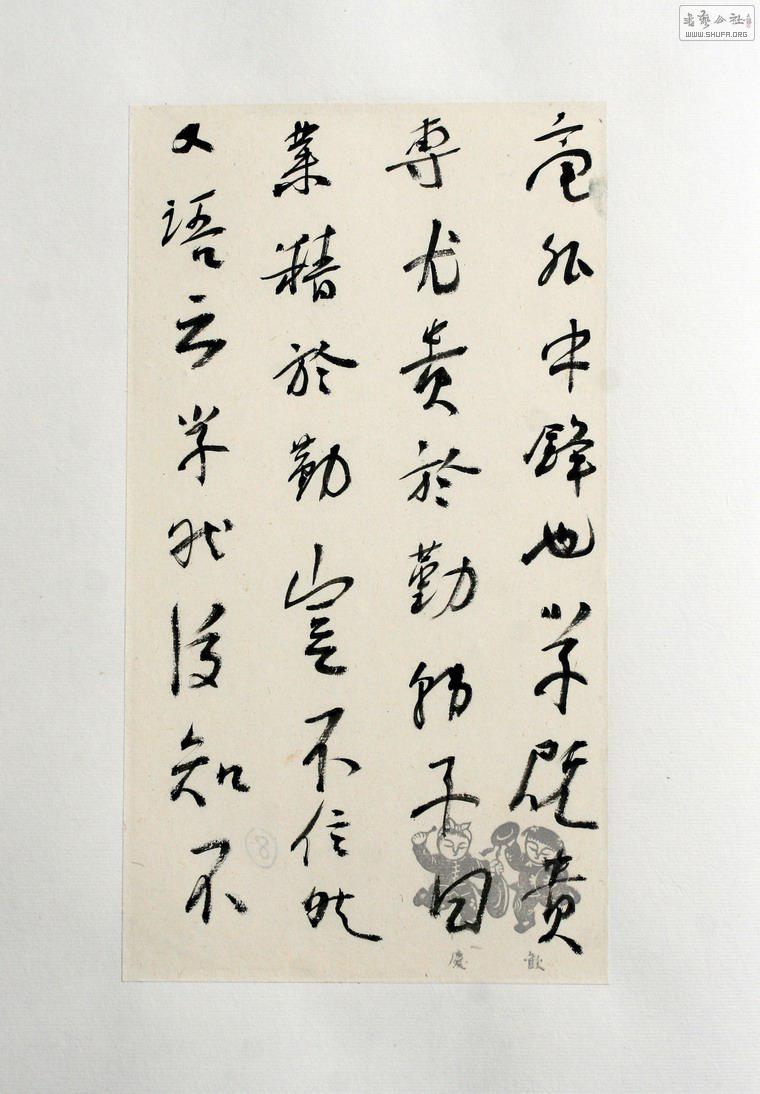 書藝公社
WWW.SHUFA.ORG
中鋒也学既貴
專尤貴於勤韩子曰
業精於勤豈不信然
又語云学然後知不
8
歡慶